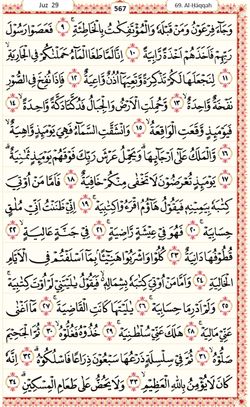 Juz 29 567 69. Al-Hāqqah
وَجَآءَ فِرْعَوْنُ وَمَنْ قَبْلَهٗ وَالْمُؤْتَفِكٰتُ بِالْخَاطِئَةِ ٩ فَعَصَوْا رَسُوْلَ
رَبِّهِمْ فَاَخَذَهُمْ اَخْذَةً رَّابِيَةً ١٠ اِنَّا لَمَّا طَغَا الْمَآءُ حَمَلْنٰكُمْ فِى الْجَارِيَةِ
١١ لِنَجْعَلَهَا لَكُمْ تَذْكِرَةً وَّتَعِيَهَآ اُذُنٌ وَّاعِيَةٌ ١٢ فَاِذَا نُفِخَ فِى الصُّوْرِ
نَفْخَةٌ وَّاحِدَةٌ ١٣ وَّحُمِلَتِ الْاَرْضُ وَالْجِبَالُ فَدُكَّتَا دَكَّةً وَّاحِدَةً ١٤
فَيَوْمَئِذٍ وَّقَعَتِ الْوَاقِعَةُ ١٥ وَانْشَقَّتِ السَّمَآءُ فَهِىَ يَوْمَئِذٍ وَّاهِيَةٌ ١٦
وَّالْمَلَكُ عَلٰٓى اَرْجَآئِهَا وَيَحْمِلُ عَرْشَ رَبِّكَ فَوْقَهُمْ يَوْمَئِذٍ ثَمٰنِيَةٌ
١٧ يَوْمَئِذٍ تُعْرَضُوْنَ لَا تَخْفٰى مِنْكُمْ خَافِيَةٌ ١٨ فَاَمَّا مَنْ اُوْتِىَ
كِتٰبَهٗ بِيَمِيْنِهٖ فَيَقُوْلُ هَآؤُمُ اقْرَءُوْا كِتٰبِيَهْ ١٩ اِنِّىْ ظَنَنْتُ اَنِّىْ مُلٰقٍ
حِسَابِيَهْ ٢٠ فَهُوَ فِىْ عِيْشَةٍ رَّاضِيَةٍ ٢١ فِىْ جَنَّةٍ عَالِيَةٍ ٢٢
قُطُوْفُهَا دَانِيَةٌ ٢٣ كُلُوْا وَاشْرَبُوْا هَنِيْٓئًا بِمَآ اَسْلَفْتُمْ فِى الْاَيَّامِ
الْخَالِيَةِ ٢٤ وَاَمَّا مَنْ اُوْتِىَ كِتٰبَهٗ بِشِمَالِهٖ فَيَقُوْلُ يٰلَيْتَنِىْ لَمْ اُوْتَ كِتٰبِيَهْ
٢٥ وَلَمْ اَدْرِ مَا حِسَابِيَهْ ٢٦ يٰلَيْتَهَا كَانَتِ الْقَاضِيَةَ ٢٧ مَآ اَغْنٰى
عَنِّىْ مَالِيَهْ ٢٨ هَلَكَ عَنِّىْ سُلْطٰنِيَهْ ٢٩ خُذُوْهُ فَغُلُّوْهُ ٣٠ ثُمَّ الْجَحِيْمَ
صَلُّوْهُ ٣١ ثُمَّ فِىْ سِلْسِلَةٍ ذَرْعُهَا سَبْعُوْنَ ذِرَاعًا فَاسْلُكُوْهُ ٣٢ اِنَّهٗ
كَانَ لَا يُؤْمِنُ بِاللّٰهِ الْعَظِيْمِ ٣٣ وَلَا يَحُضُّ عَلٰى طَعَامِ الْمِسْكِيْنِ ٣٤